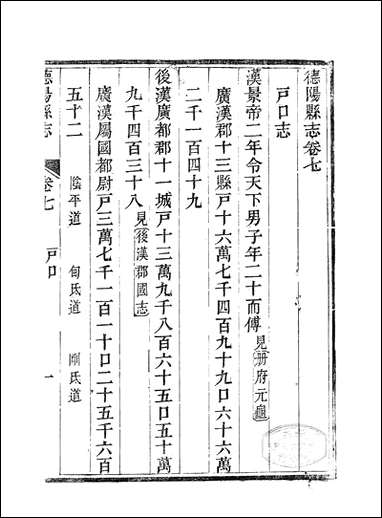 德陽縣志卷七
戸口志
漢景帝二年令天下男子年二十而傅見册府元龜
廣漢郡十三縣戸十六萬七千四百九十九口六十六萬
二千一百四十九
後漢廣都郡十一城戸十三萬九千八百六十五口五十萬
九千四百三十八見後漢郡國志
廣漢屬國都尉戸三萬七千一百一十口二十五千六百
五十二 陰平道 甸氐道 剛氐道
德陽縣志 卷七 戸口 一